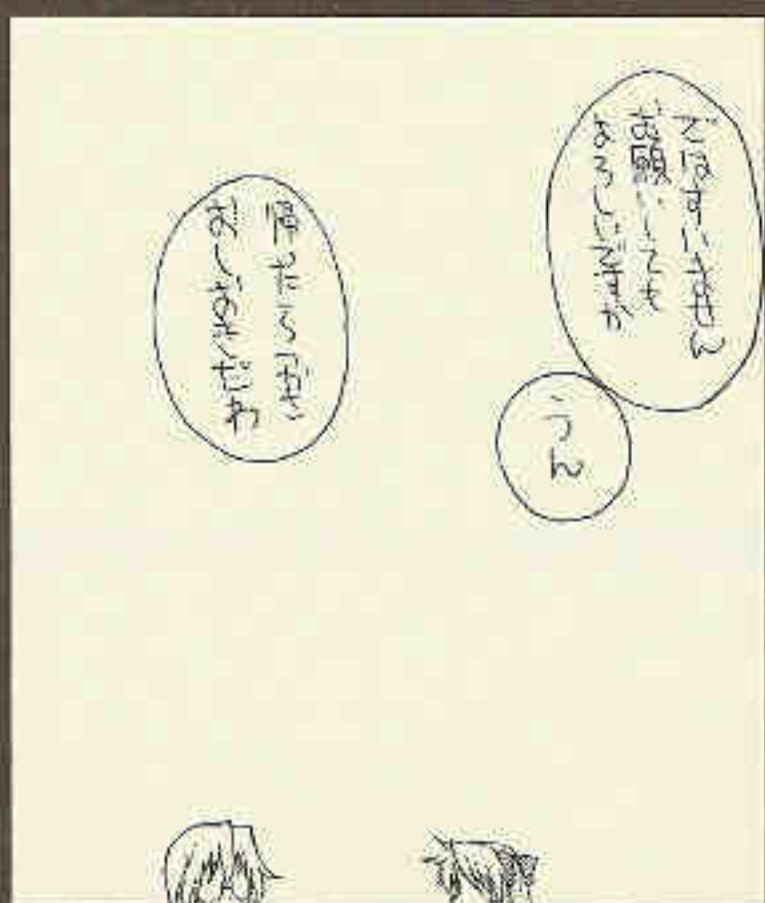 ではすいません
お願いしても
よろしいですか
うん
帰ったら
おしおきだわ